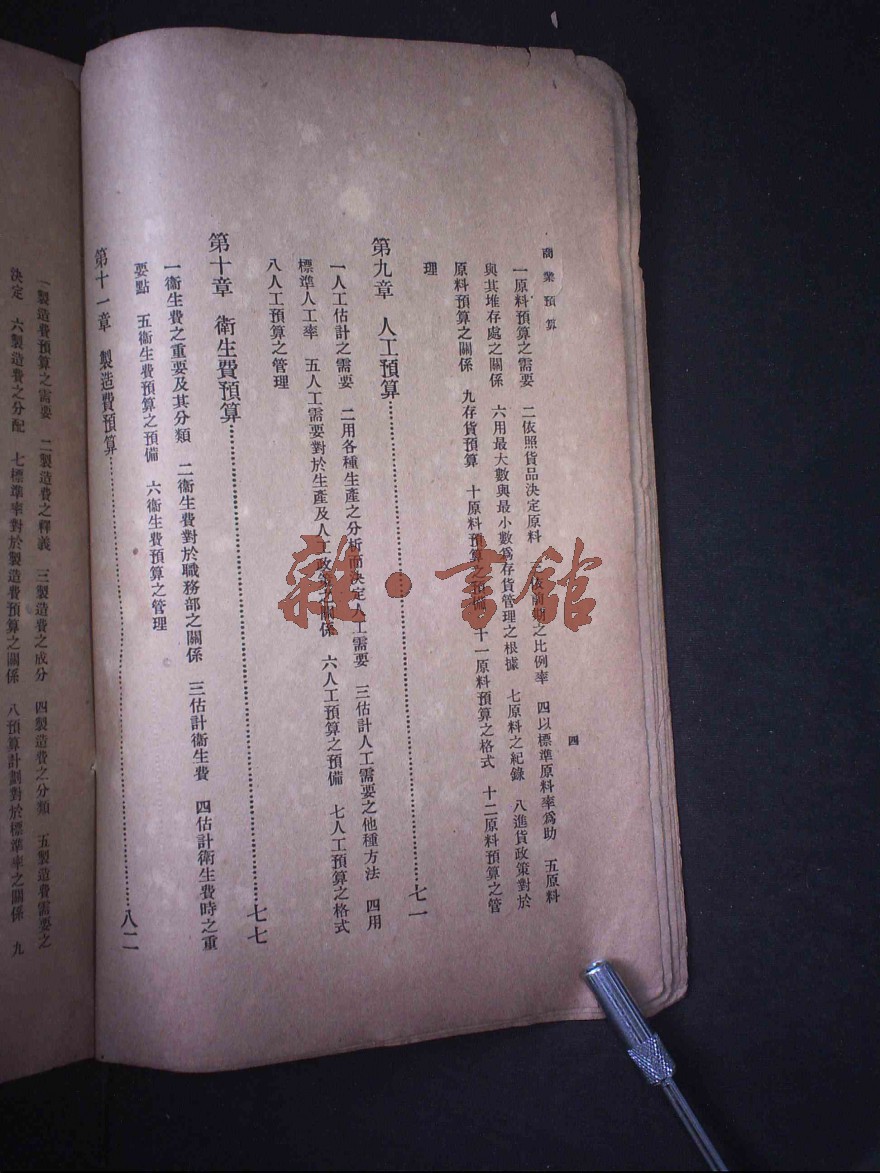 商業預算
四
一原料預算之需要 二依照貨品決定原料 三依前期之比例率 四以標準原料率爲助 五原料
與其堆存處之關係 六用最大數與最小數爲存貨管理之根據 七原料之紀錄 八進貨政策對於
原料預算之關係 九存貨預算 十原料預算之預備 十一原料預算之格式 十二原料預算之管
理
第九章 人工預算……七一
一人工估計之需要 二用各種生產之分析而決定人工需要 三估計人工需要之他種方法 四用
標準人工率 五人工需要對於生產及人工政策之關係 六人工預算之預備 七人工預算之格式
八人工預算之管理
第十章 衛生費預算……七七
一衛生費之重要及其分類 二衛生費對於職務部之關係 三估計衛生費 四估計衛生費時之重
要點 五衛生費預算之預備 六衛生費預算之管理
第十一章 製造費預算……八二
一製造費預算之需要 二製造費之釋義 三製造費之成分 四製造費之分類 五製造費需要之
決定 六製造費之分配 七標準率對於製造費預算之關係 八預算計劃對於標準率之關係 九
雜·書館